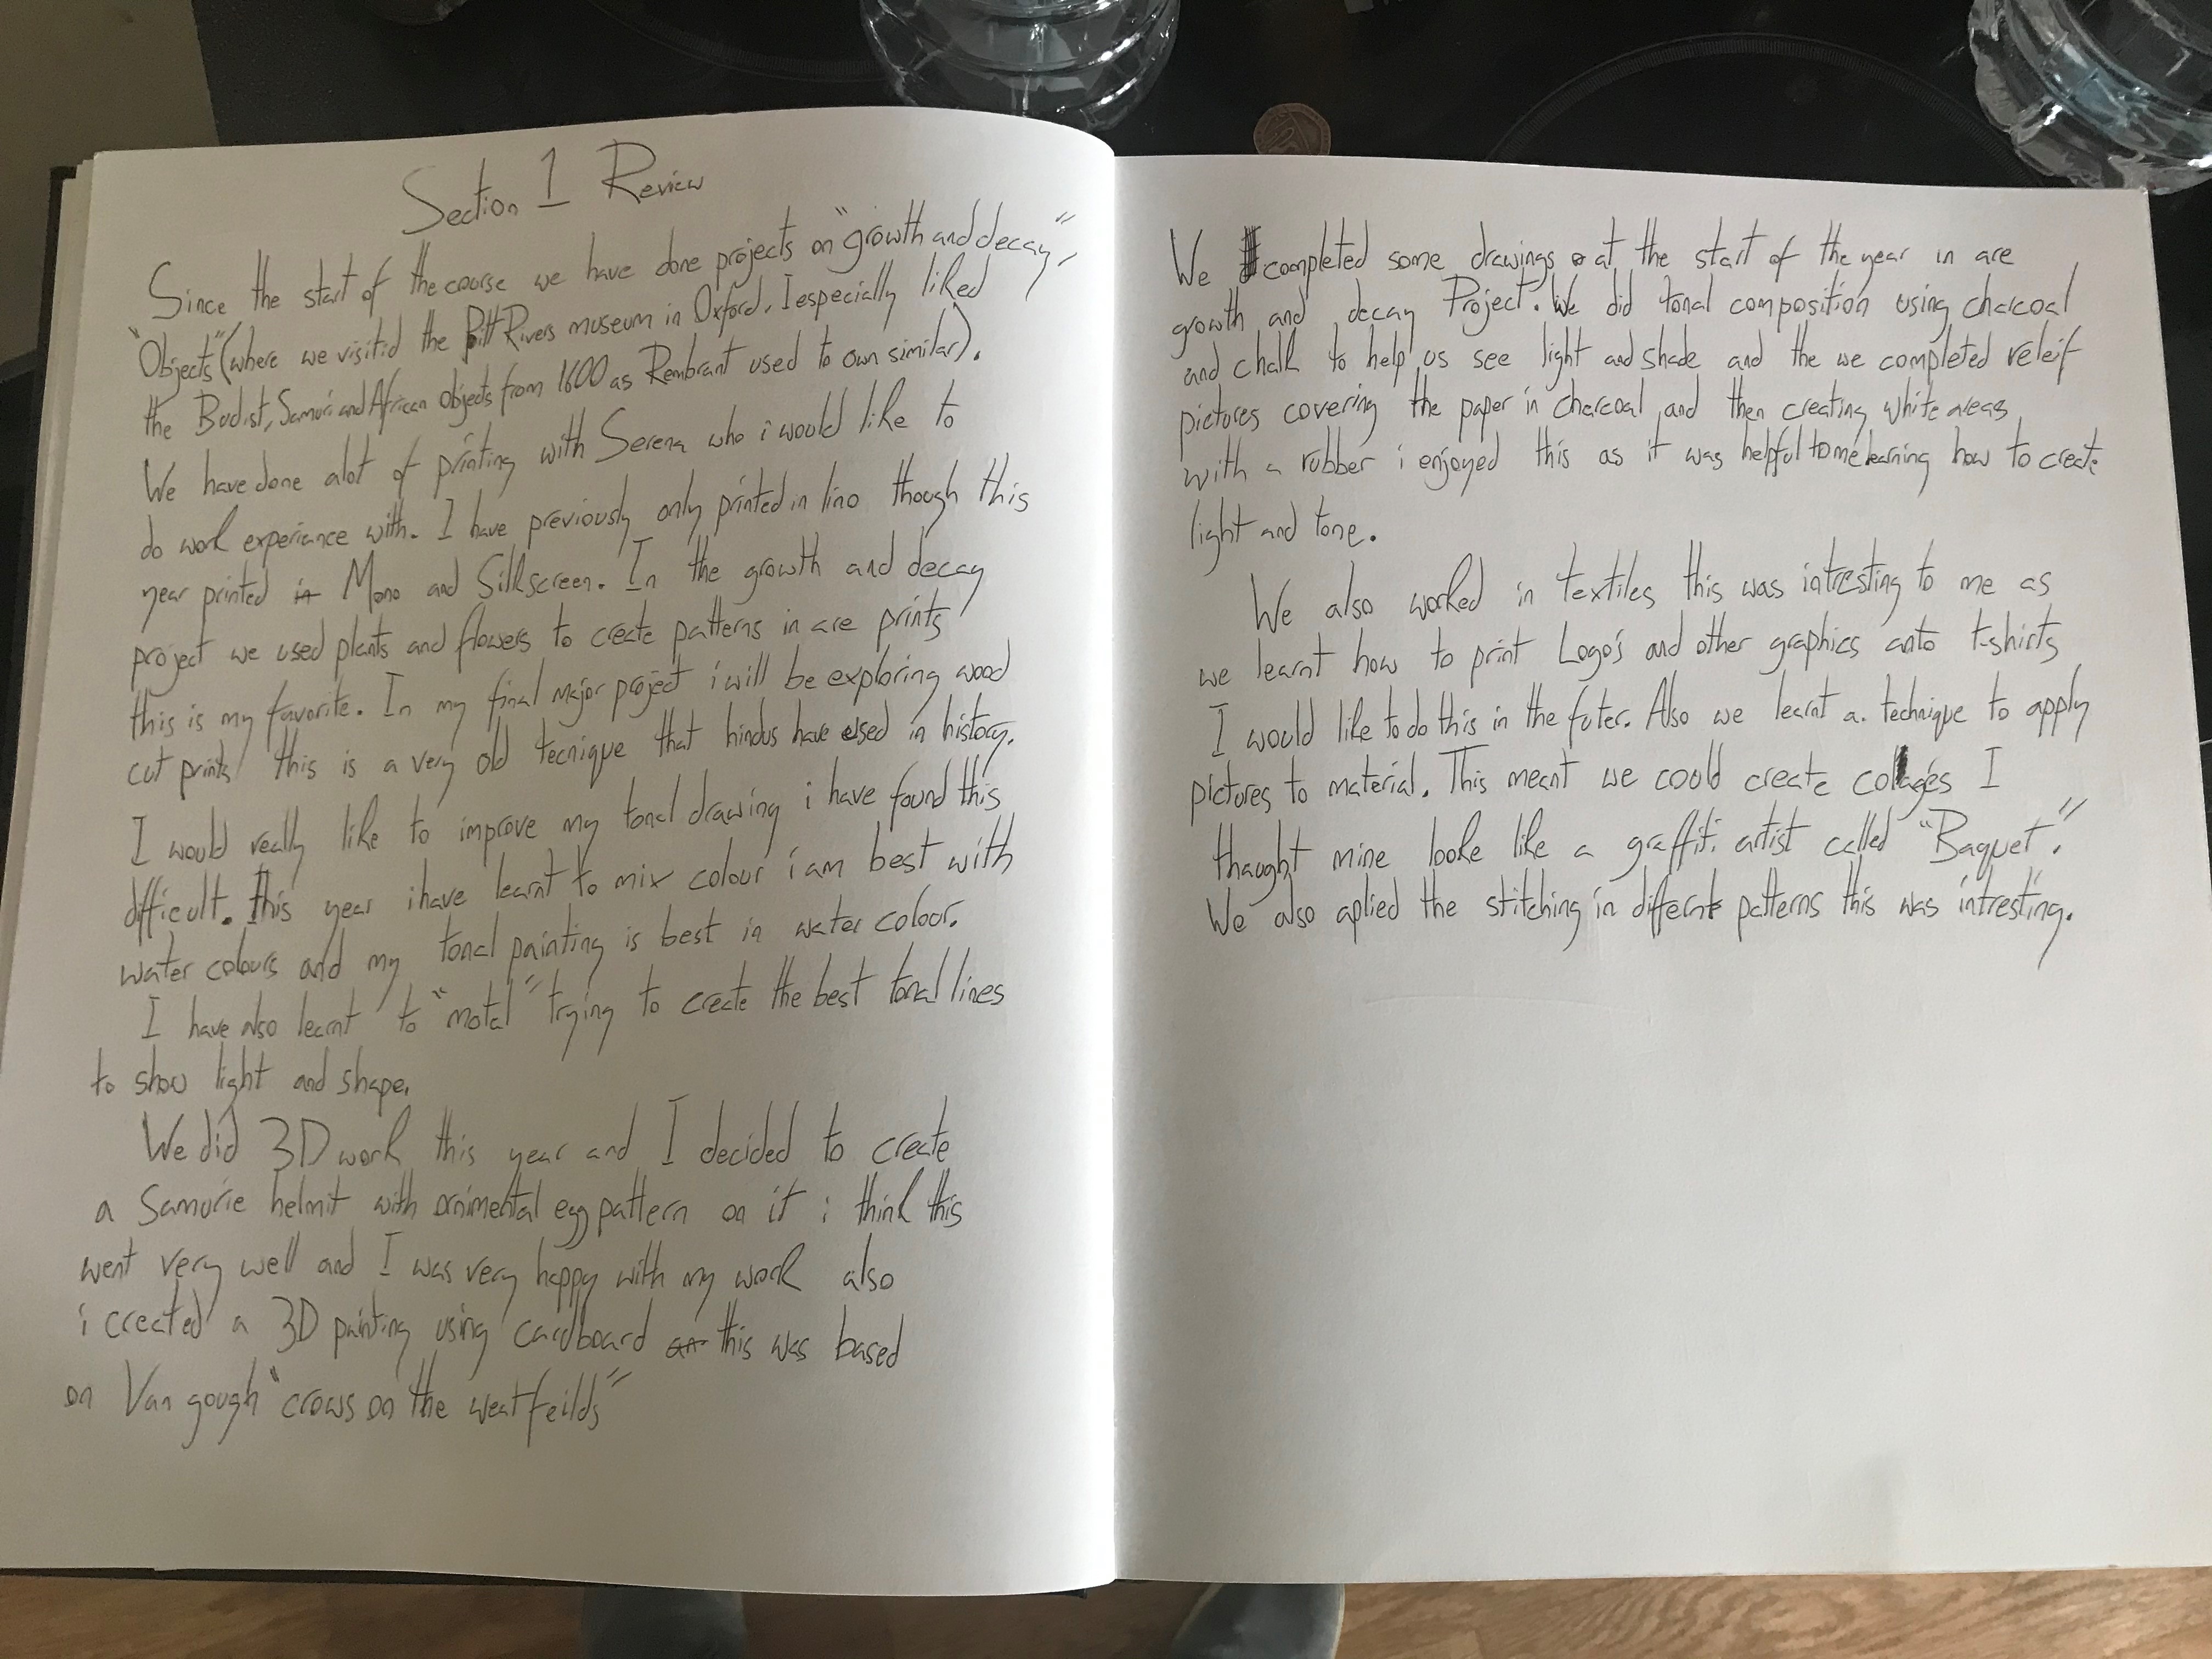 Section 1 Review
Since the start of the course we have done projects on "growth and decay",
"Objects" (where we visitid the Pitt Rivers museum in Oxford. I especially liked
the Budist, Samuri and African objects from 1600 as Rembrant used to own similar).
We have done alot of printing with Serena who i would like to
do work experiance with. I have previously only printed in lino though this
year printed in Mono and Silkscreen. In the growth and decay
project we used plants and flowers to create patterns in are prints
this is my favorite. In my final major project i will be exploring wood
cut prints this is a very old tecnique that hindus have used in history.
I would really like to improve my tonal drawing i have found this
difficult. This year i have learnt to mix colour i am best with
water colours and my tonal painting is best in water colour.
I have also learnt to "motal" trying to create the best tonal lines
to show light and shape.
We did 3D work this year and I decided to create
a Samurie helmit with ornimental egg pattern on it i think this
went very well and I was very happy with my work also
i created a 3D painting using cardboard an this was based
on Van gough "crows on the weatfeilds"
We completed some drawings at the start of the year in are
growth and decay Project. We did tonal composition using charcoal
and chalk to help us see light and shade and the we completed releif
pictures covering the paper in charcoal and then creating white areas
with a rubber i enjoyed this as it was helpful to me learning how to create
light and tone.
We also worked in textiles this was intresting to me as
we learnt how to print Logo's and other graphics onto t-shirts
I would like to do this in the futer. Also we learnt a technique to apply
pictures to material. This meant we could create collages I
thaught mine looke like a graffiti artist called "Baquet".
We also aplied the stitching in differnt patterns this was intresting.